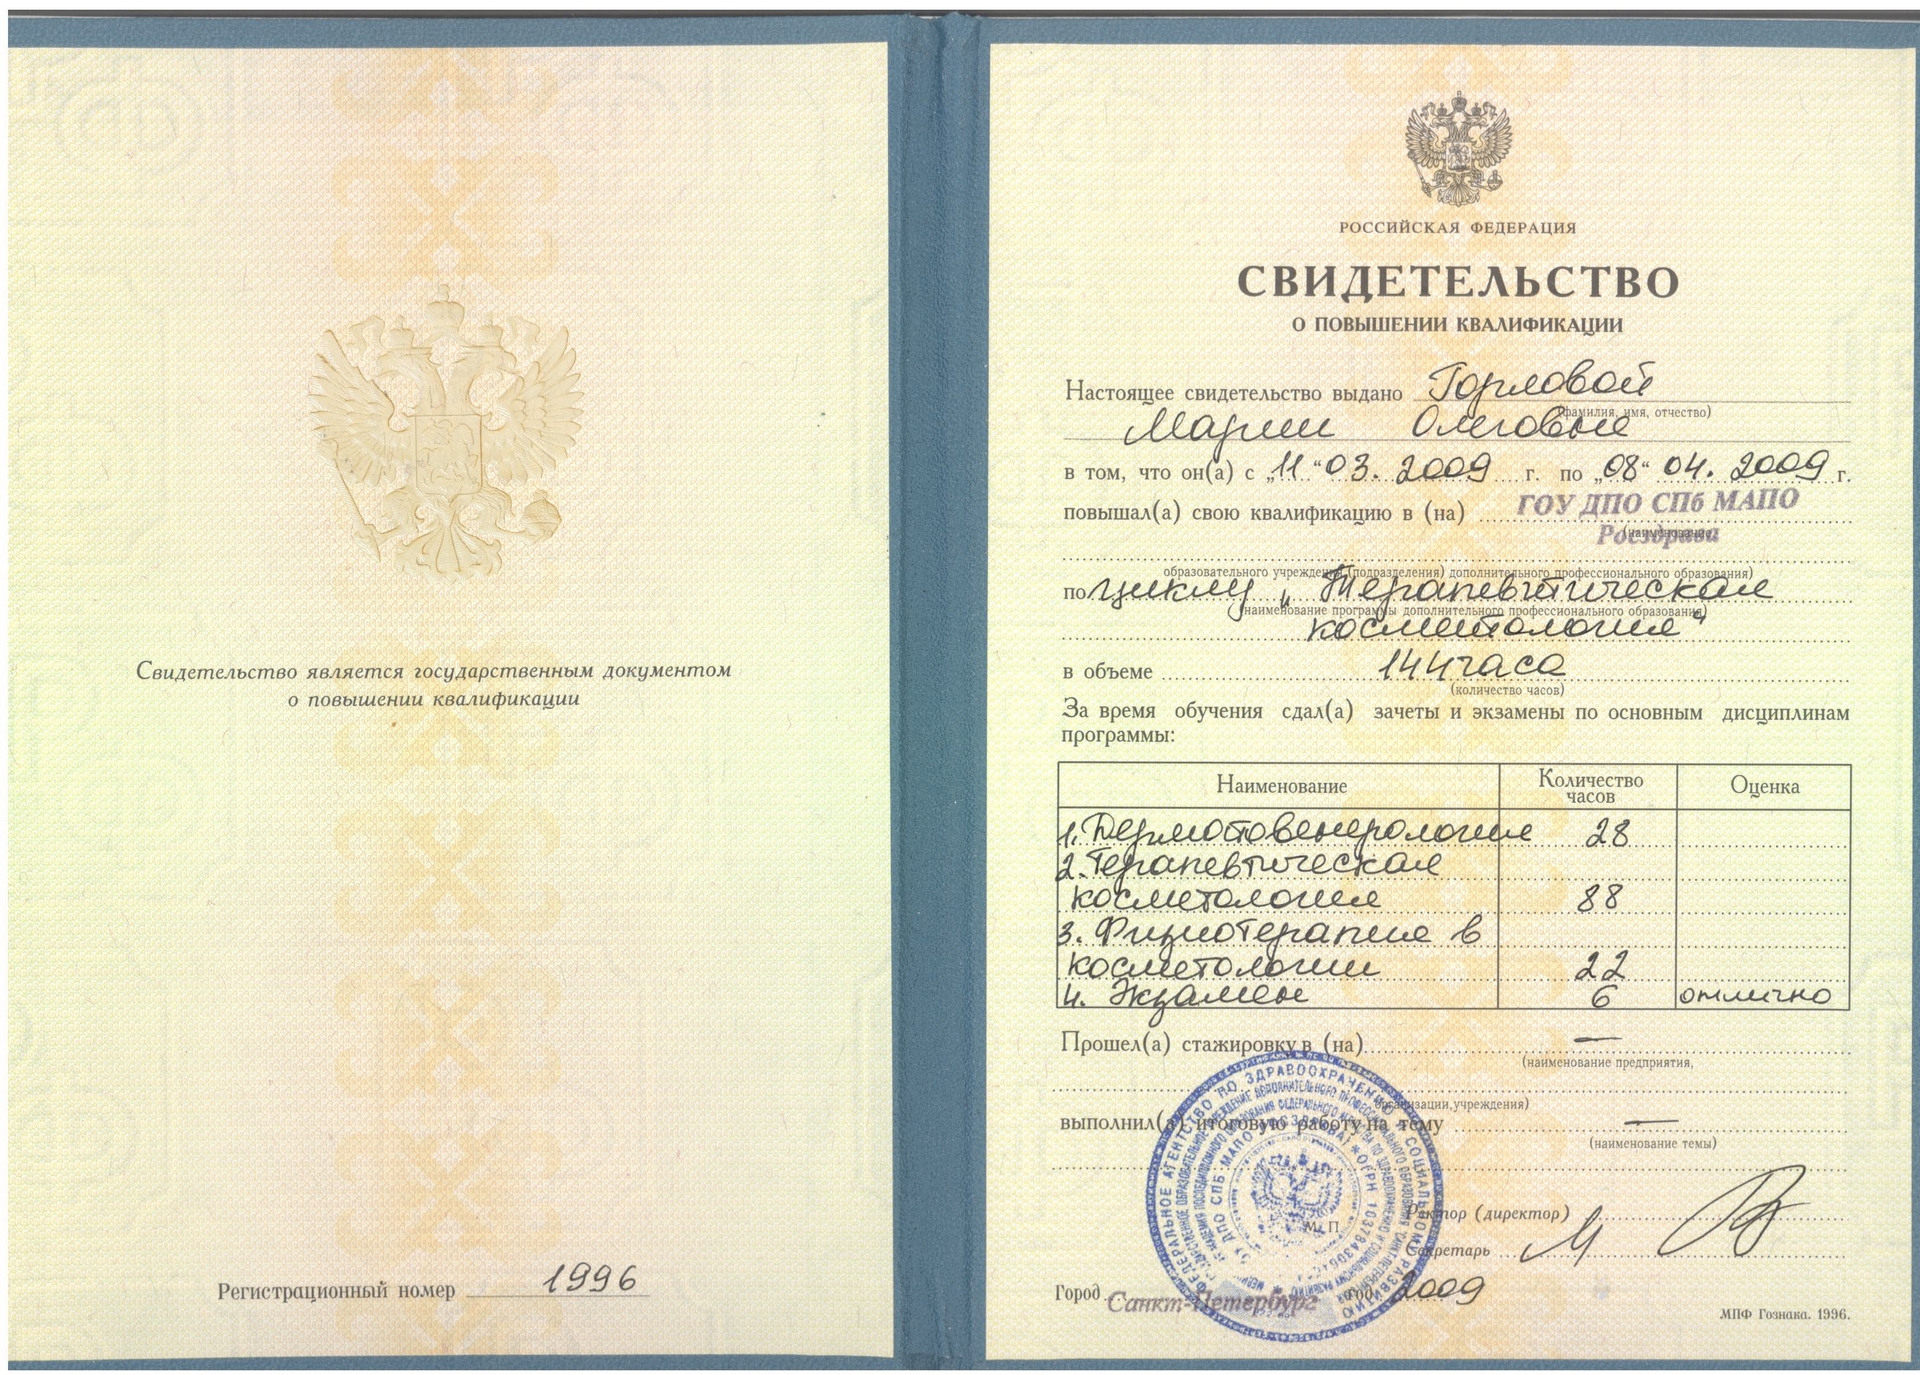 Свидетельство является государственным документом
о повышении квалификации
Регистрационный номер 1996
РОССИЙСКАЯ ФЕДЕРАЦИЯ
СВИДЕТЕЛЬСТВО
О ПОВЫШЕНИИ КВАЛИФИКАЦИИ
Настоящее свидетельство выдано Горловой
(фамилия, имя, отчество)
Марии Олеговне
в том, что он(а) с „11“ 03. 2009 г. по „08“ 04. 2009 г.
повышал(а) свою квалификацию в (на) ГОУ ДПО СПб МАПО
(наименование
Росздрава
образовательного учреждения (подразделения) дополнительного профессионального образования)
по циклу „Терапевтическая
(наименование программы дополнительного профессионального образования)
косметология“
в объеме 144 часа
(количество часов)
За время обучения сдал(а) зачеты и экзамены по основным дисциплинам
программы:
Наименование Количество часов Оценка
1. Дерматовенерология 28
2. Терапевтическая
косметология 88
3. Физиотерапия в
косметологии 22
4. Экзамен 6 отлично
Прошел(а) стажировку в (на) —
(наименование предприятия,
организации, учреждения)
выполнил(а) итоговую работу на тему —
(наименование темы)
ФЕДЕРАЛЬНОЕ АГЕНТСТВО ПО ЗДРАВООХРАНЕНИЮ И СОЦИАЛЬНОМУ РАЗВИТИЮ
ДПО СПБ МАПО РОСЗДРАВА
М. П.
Ректор (директор)
Секретарь
Город Санкт-Петербург год 2009
МПФ Гознака. 1996.